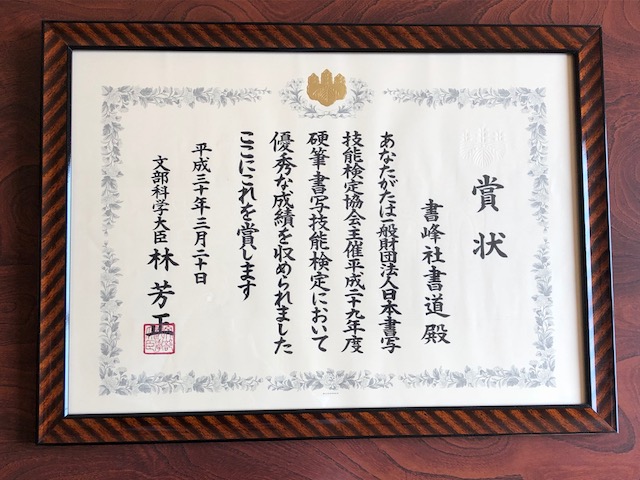 賞状
書峰社書道殿
あなたがたは一般財団法人日本書写
技能検定協会主催平成二十九年度
硬筆書写技能検定において
優秀な成績を収められました
ここにこれを賞します
平成三十年三月二十日
文部科学大臣 林芳正